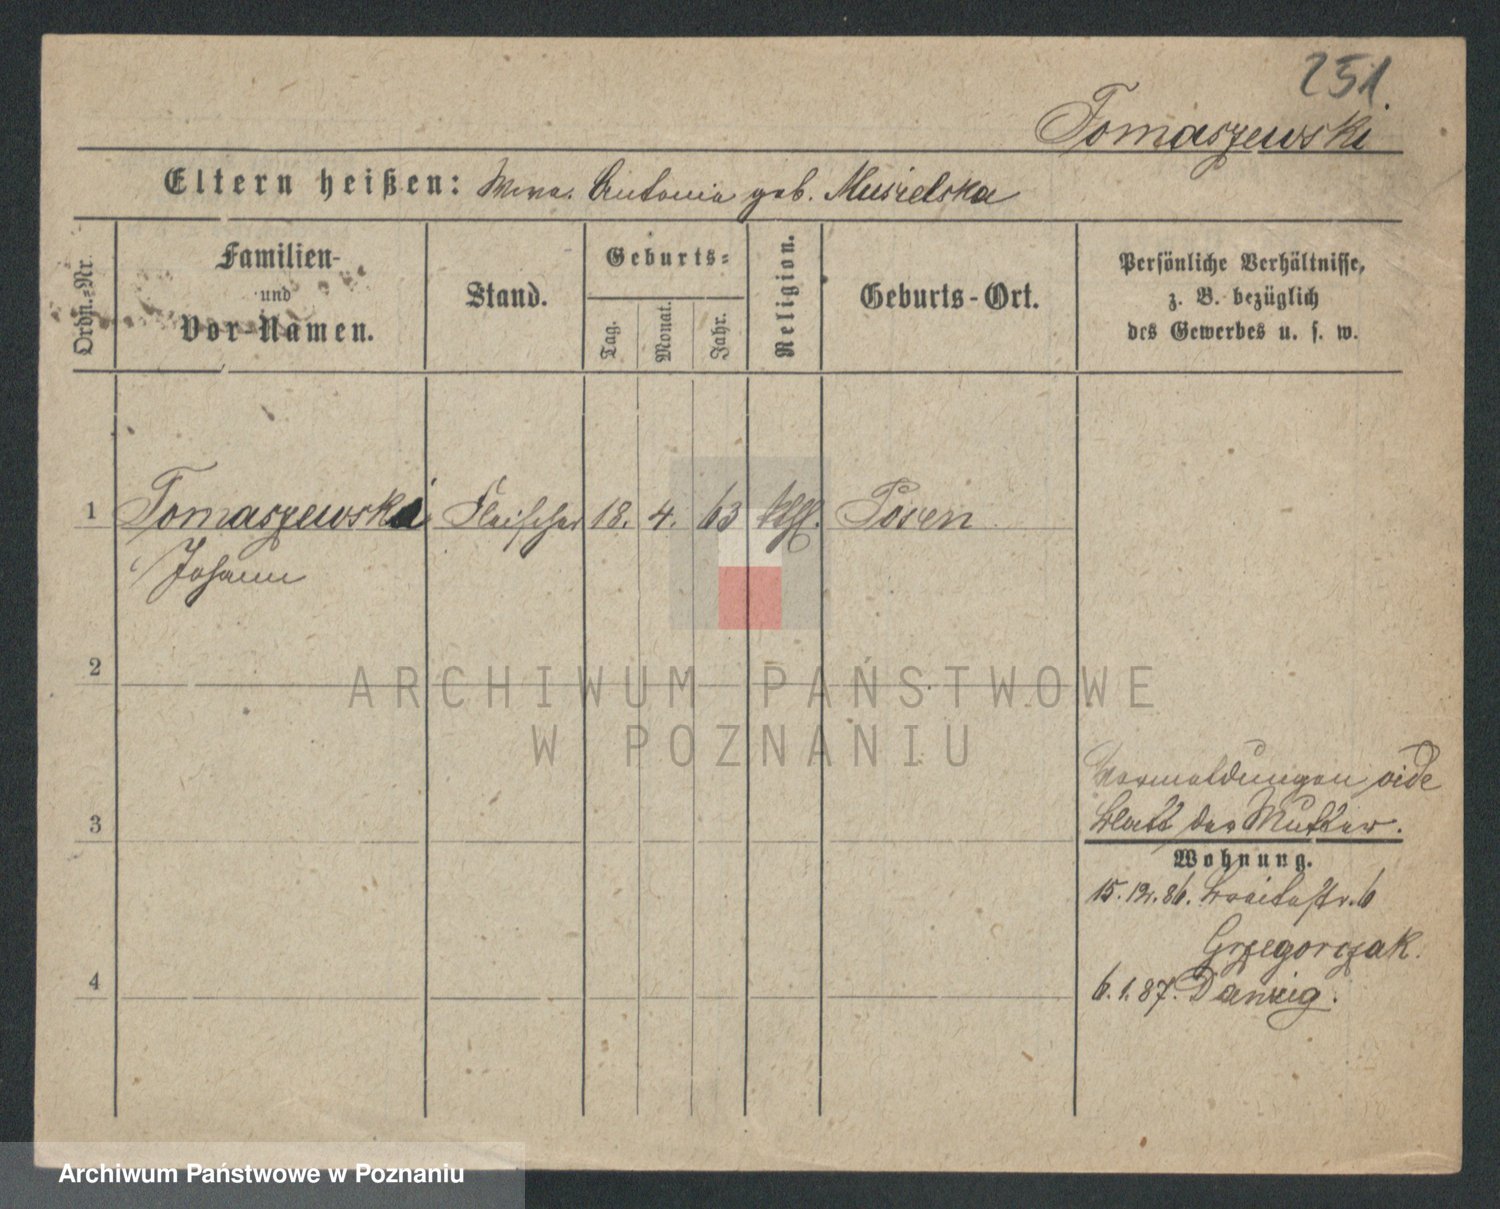 251.
Tomaszewski
Eltern heißen: Wwe. Antonia geb. Musielska
Ordn.-Nr.
Familien-
und
Vor-Namen.
Stand.
Geburts-
Tag.
Monat.
Jahr.
Religion.
Geburts-Ort.
Persönliche Verhältnisse,
z. B. bezüglich
des Gewerbes u. s. w.
1 Tomaszewski Fleischer 18. 4. 63 Posen
Johann
2
ARCHIWUM PAŃSTWOWE
W POZNANIU
Vermeldungen vide
3 Blatt der Mutter.
Wohnung.
15. 12. 86. Breitestr. 6
Grzegorczak.
4 6. 1. 87. Danzig.
Archiwum Państwowe w Poznaniu